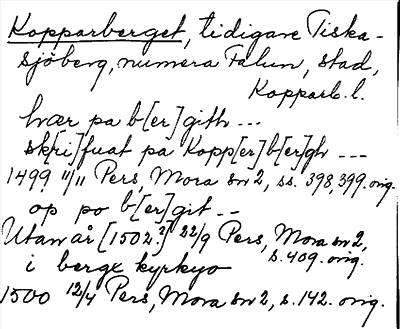 Kopparberget, tidigare Tiska-
sjöberg, numera Falun, stad,
Kopparb.l.
hvær pa b[er]gith ---
sk[ri]fuat pa Kopp[er]b[er]gh ---
1499 11/11 Pers, Mora sn 2, ss. 398, 399. orig.
op po b[er]git --
Utan år [1502?] 22/9 Pers, Mora sn 2,
s. 409. orig.
i bergx kyrkyo
1500 12/4 Pers, Mora sn 2, s. 142. orig.